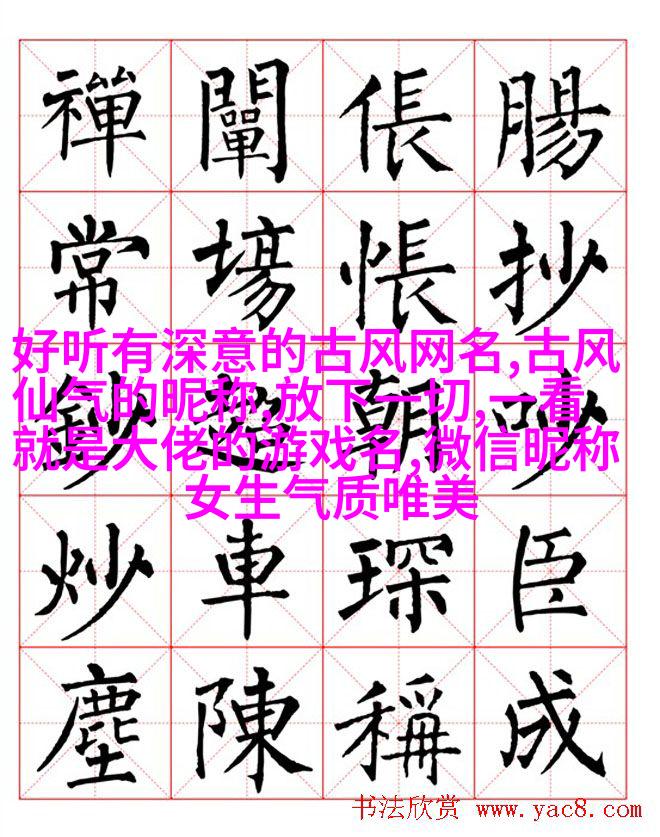 禪 闡 倀 腸
常 場 悵 抄
好听有深意的古风网名,古风
仙气的昵称,放下一切,一看
就是大佬的游戏名,微信昵称
女生气质唯美
鈔 超 朝 吵
炒 車 琛 臣
塵 陳 稱 成
书法欣赏 www.yac8.com